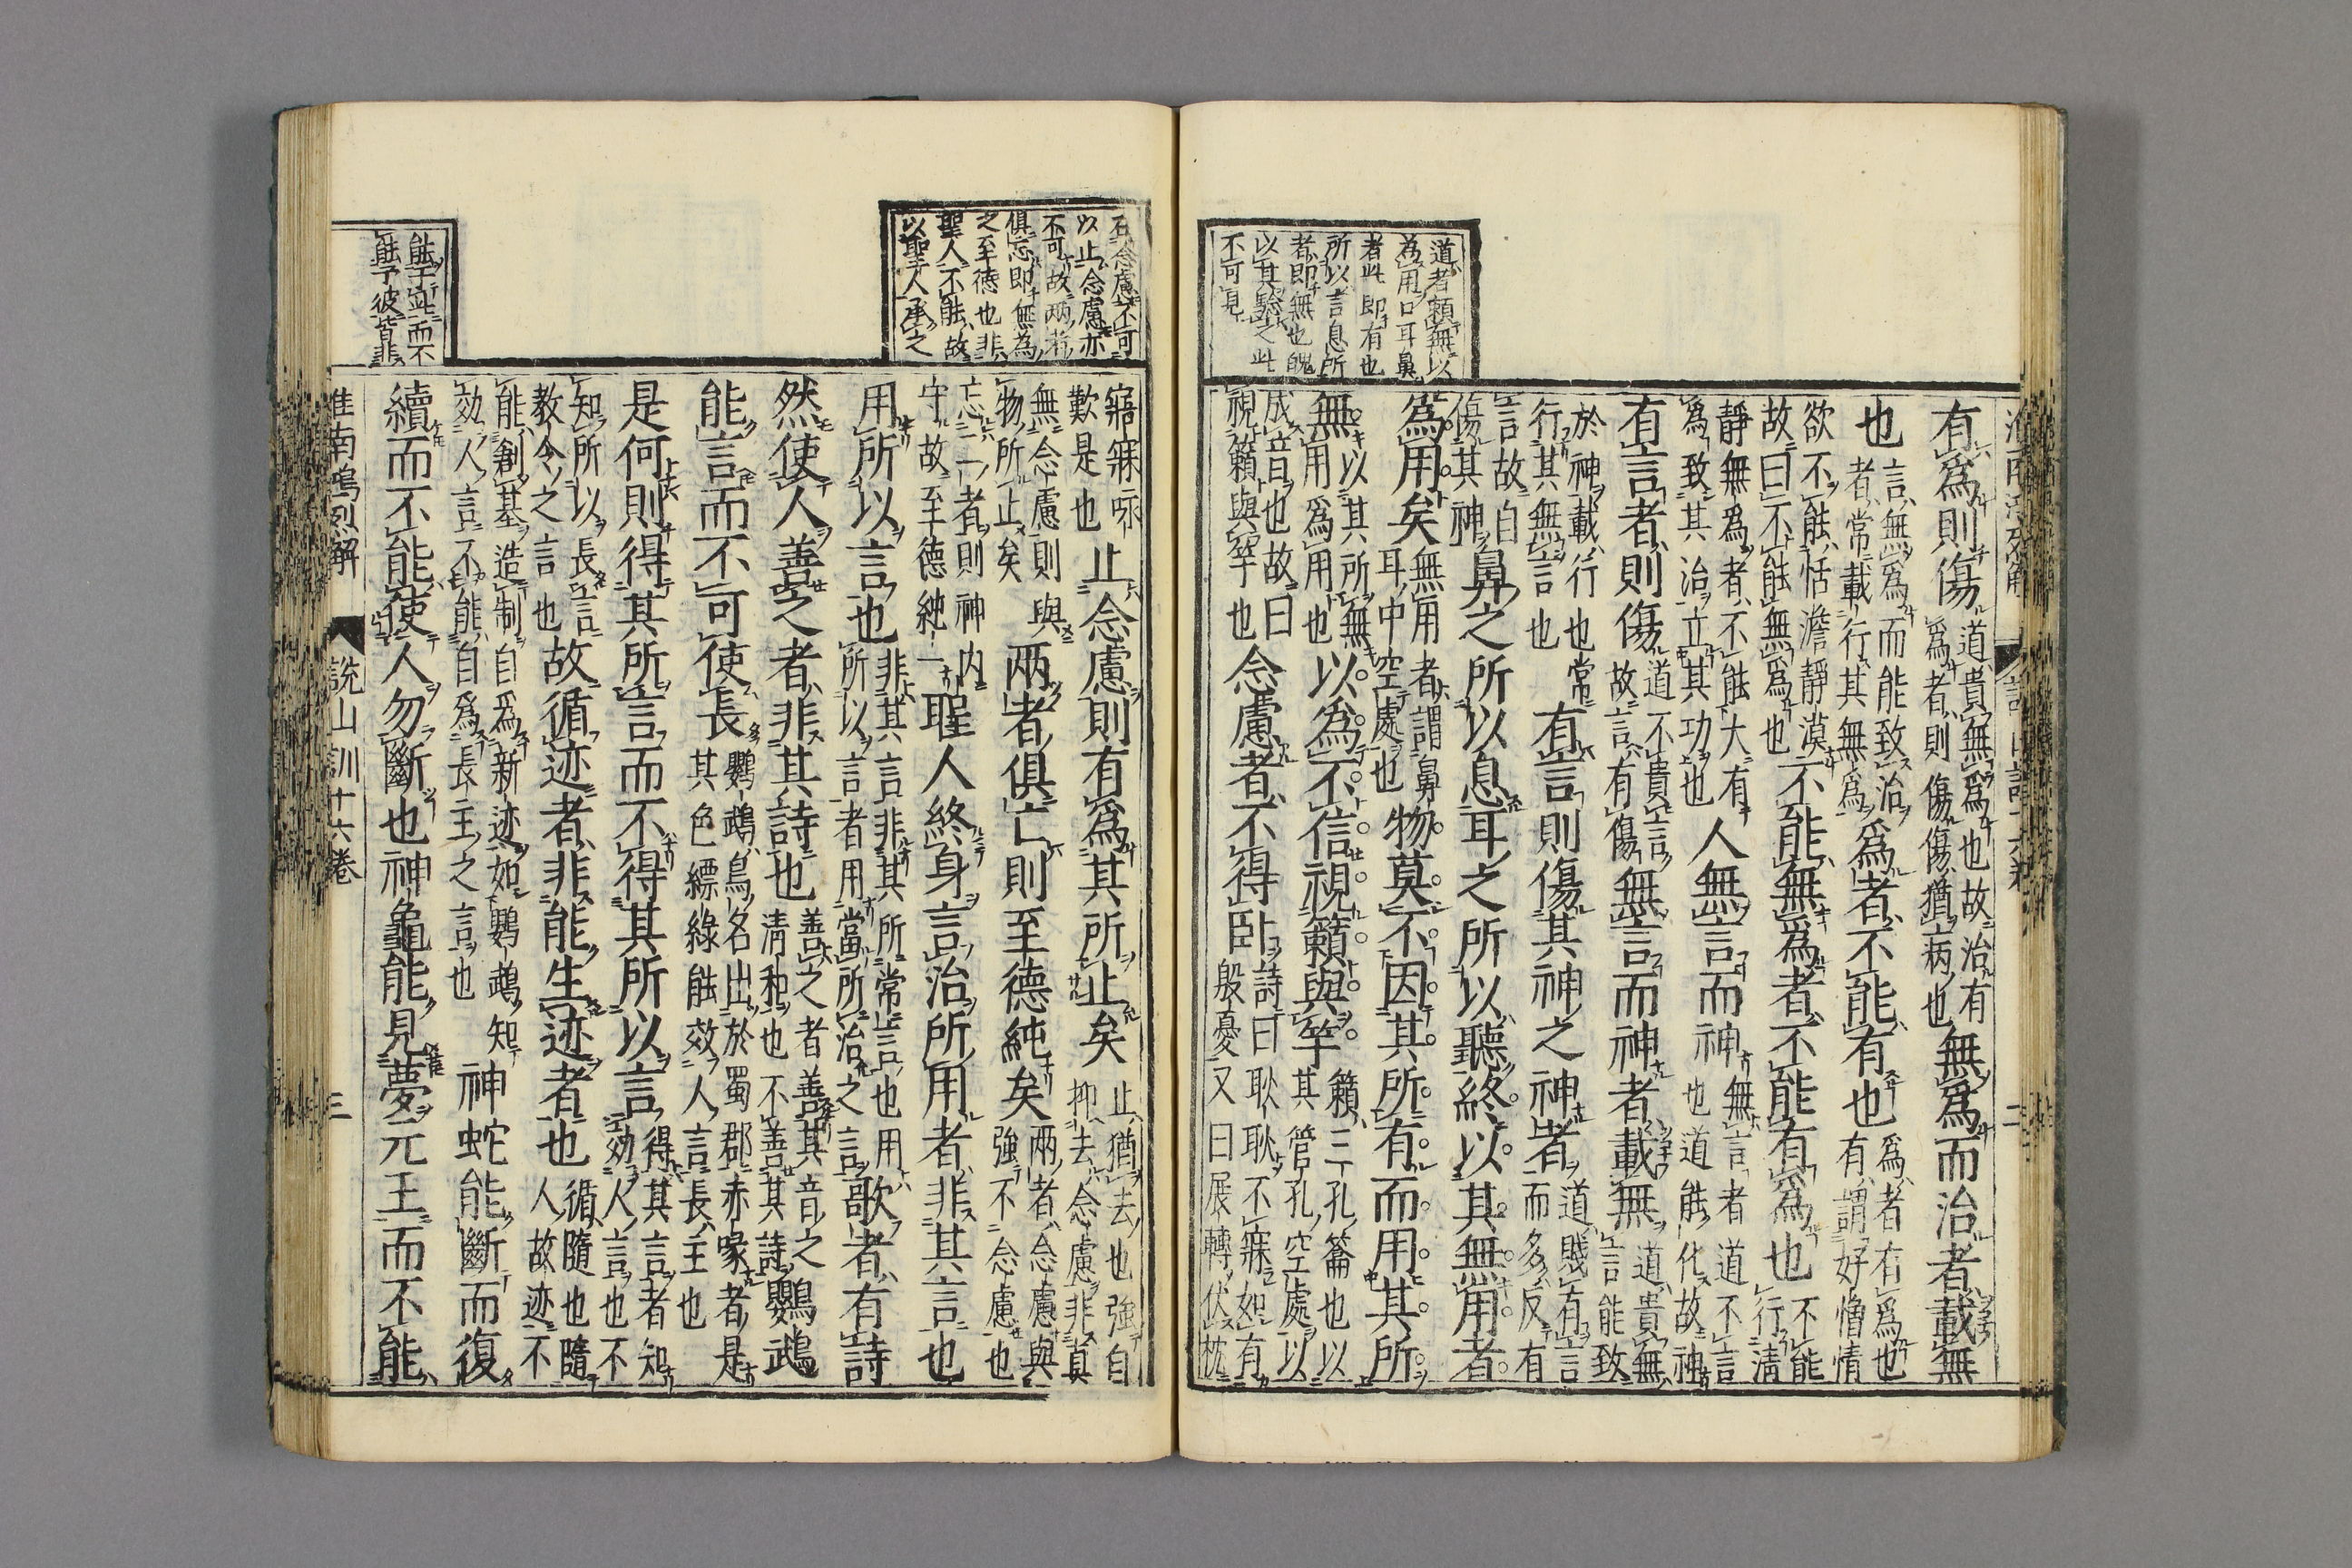 道者賴無以
為用口耳鼻
者此即有也
所以言息所
者即無也䰟
以其驗之此
不可見
有為則傷道貴無為也故治有為者則傷傷猶病也無為而治者載無
也言無為而能致治者常載行其無為為者不能有也為者有為也有謂好憎情
欲不能恬澹靜漠故曰不能無為也不能無為者不能有為也不能行清
靜無為者不能大有為致其治立其功也人無言而神無言者道不言也道能化故神
有言者則傷道不貴言故言有傷無言而神者載無道貴無言能致
於神載行也常行其無言也有言則傷其神之神者道賤有言而多反有
言故自傷其神鼻之所以息耳之所以聽終以其無用者
為用矣無用者謂鼻耳中空處也物莫不因其所有而用其所
無以其所無用為用也以為不信視籟與竽籟三孔籥也以其管孔空處以
成音也故曰視籟與竽也念慮者不得臥詩曰耿耿不寐如有殷憂又曰展轉伏枕
有念慮不可
以止念慮亦
不可故兩者
俱忘即無為
之至德也非
聖人不能故
以聖人承之
寤寐咏歎是也止念慮則有為其所止矣止猶去也強自抑去念慮非真
無念慮則與物所止矣兩者俱亡則至德純矣兩者念慮與強不念慮也
忘二者則神内守故至德純一聖人終身言治所用者非其言也
用所以言也非其言非其所常言也用所以言者用當所治之言歌者有詩
然使人善之者非其詩也善之者善其音之清和也不善其詩鸚鵡
能言而不可使長鸚鵡鳥名出於蜀郡赤喙者是其色縹綠能效人言長主也
是何則得其所言而不得其所以言得其言者知効人言也不
知所以長言教令之言也故循迹者非能生迹者也循隨也隨人故迹不
能創基造制自為新迹如鸚鵡知効人言不能自為長主之言也神蛇能斷而復
能予並而不
能予彼皆非
續而不能使人勿斷也神龜能見夢元王而不能
淮南鴻烈解 說山訓十六卷 三